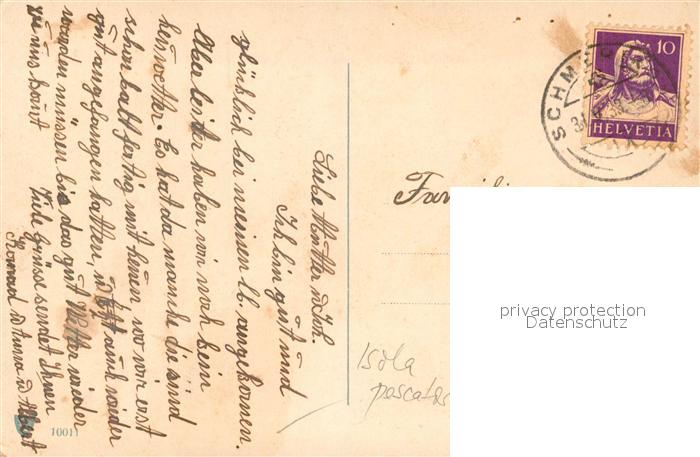 Liebe Mutter u. Joh.
Ich bin gut und
glücklich bei meinen lb. angekommen.
Aber leider haben wir noch kein
heuwetter. Es hat da manche die sind
schon balt fertig mit heuen, wo wir erst
gut angefangen hatten, u. jetzt auch wieder
warden müssen bis das gut Wetter wieder
zu uns komt
Viele Grüsse sendet Ihnen
Konrad u Anna u Albert
Familie
Isola
pescatos
10
HELVETIA
SCHMER
10011
privacy protection
Datenschutz